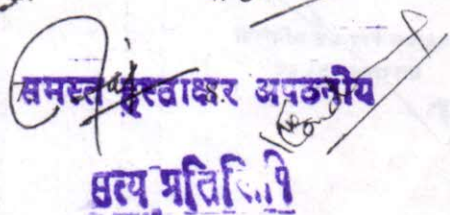 समस्त हस्ताक्षर अपठनीय
सत्य प्रतिलिपि